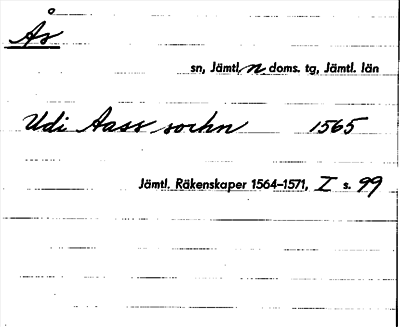 Ås
sn, Jämtl. n doms. tg, Jämtl. län
Udi Aass sockn 1565
Jämtl. Räkenskaper 1564–1571, I s. 99